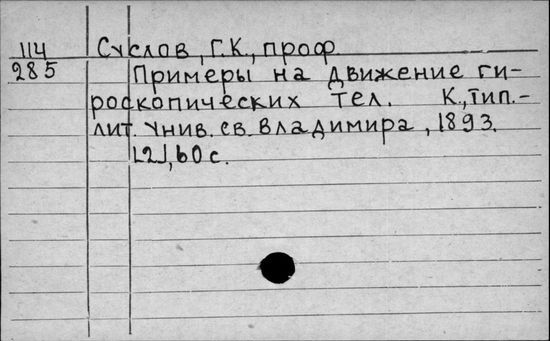 114 Суслов, Г.К., проф.
285 Примеры на движение ги-
роскопических тел. К., тип.-
лит. унив. св. Владимира, 1893.
[2], 60 с.